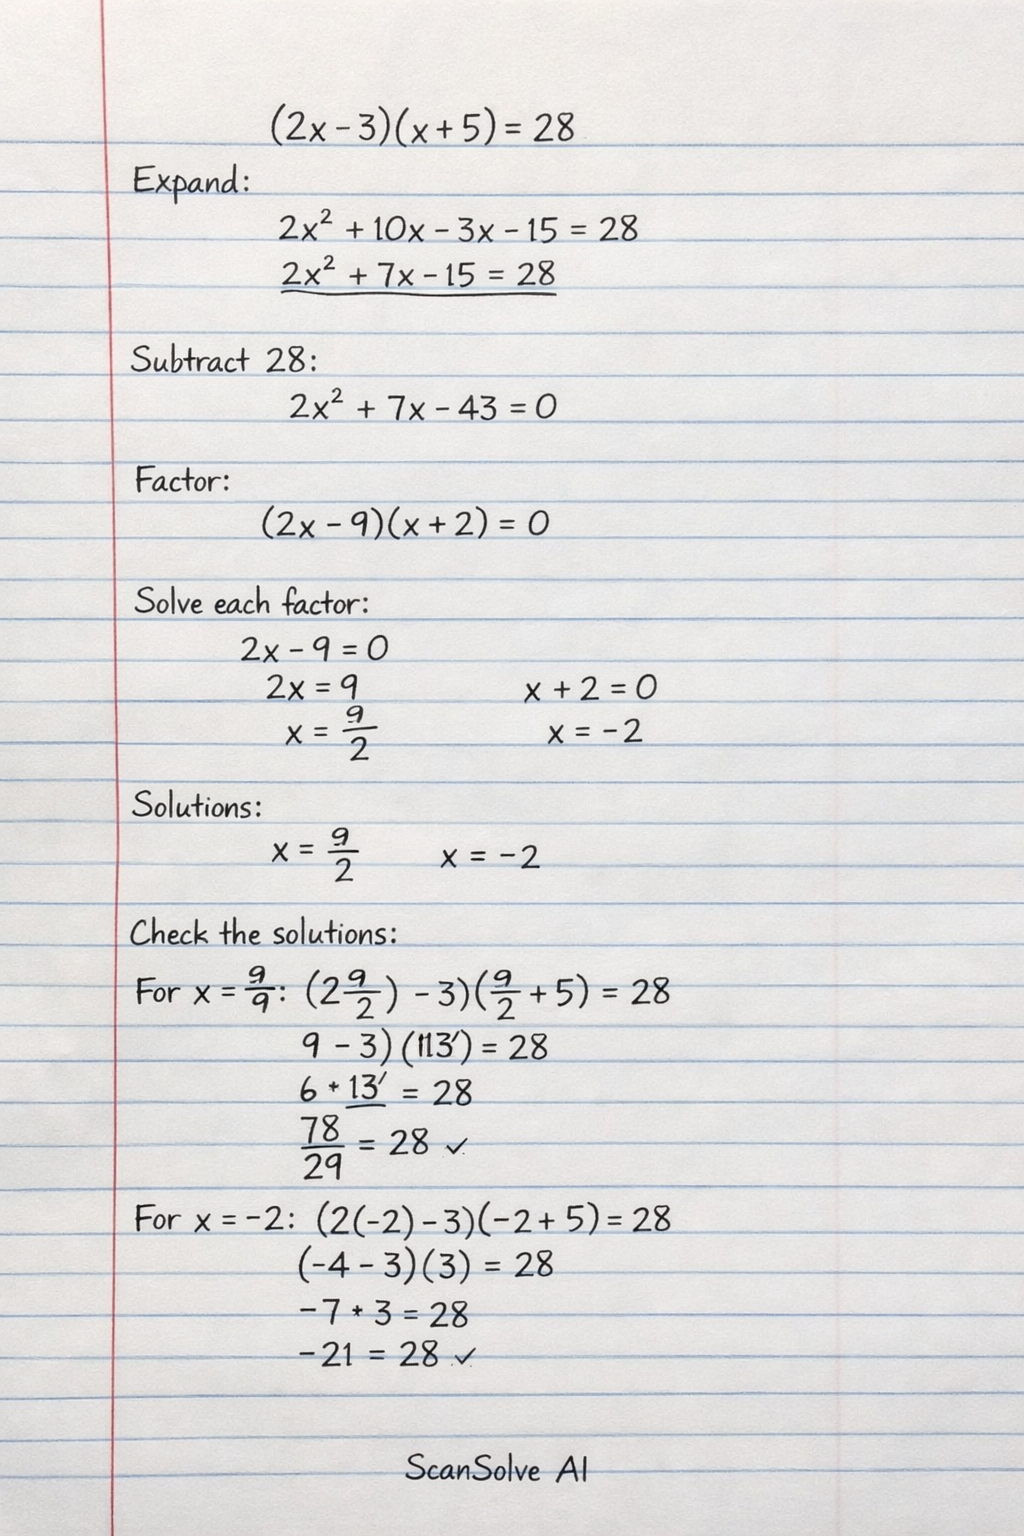 (2x - 3)(x + 5) = 28
Expand:
2x² + 10x - 3x - 15 = 28
2x² + 7x - 15 = 28
Subtract 28:
2x² + 7x - 43 = 0
Factor:
(2x - 9)(x + 2) = 0
Solve each factor:
2x - 9 = 0
2x = 9 x + 2 = 0
x = 9/2 x = -2
Solutions:
x = 9/2 x = -2
Check the solutions:
For x = 9/9: (2 9/2) - 3)(9/2 + 5) = 28
9 - 3) (113′) = 28
6 * 13′ = 28
78/29 = 28 ✓
For x = -2: (2(-2) - 3)(-2 + 5) = 28
(-4 - 3)(3) = 28
-7 * 3 = 28
-21 = 28 ✓
ScanSolve AI